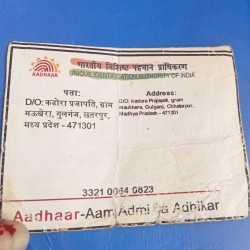 AADHAAR
भारतीय विशिष्ट पहचान प्राधिकरण
UNIQUE IDENTIFICATION AUTHORITY OF INDIA
पता:
D/O: कडोरा प्रजापति, ग्राम
मऊखेरा, गुलगंज, छतरपुर,
मध्य प्रदेश - 471301
Address:
D/O: Kadora Prajapati, gram
maukhera, Gulganj, Chhatarpur,
Madhya Pradesh - 471301
3321 0064 0823
Aadhaar-Aam Admi ka Adhikar